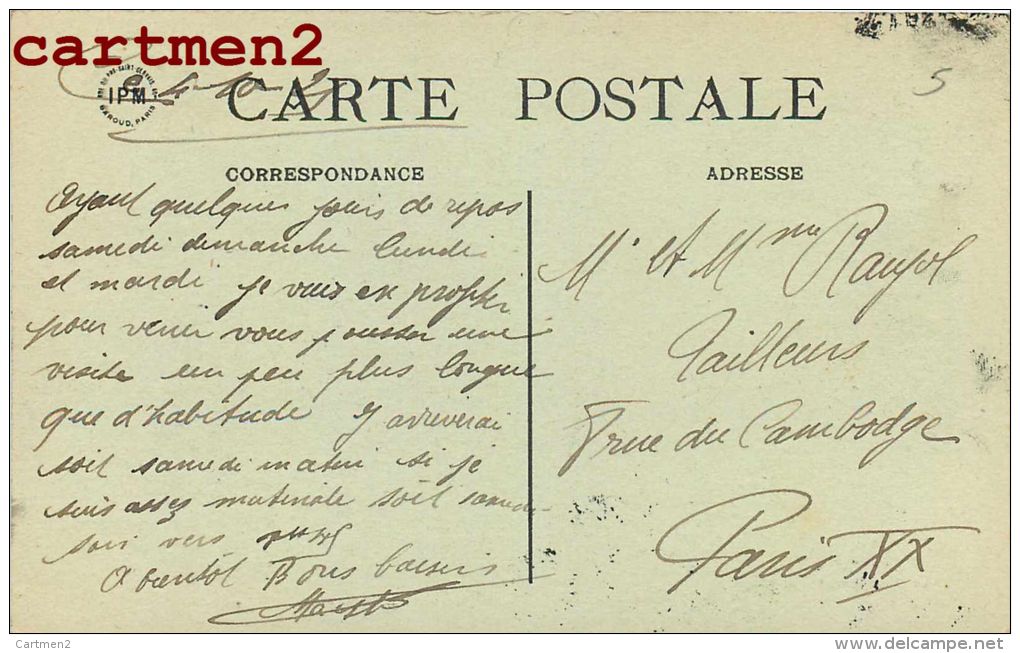 cartmen2
IPM
BAROUD, PARIS
CARTE POSTALE
CORRESPONDANCE
ADRESSE
5
Ayant quelques jours de repos
samedi dimanche lundi
et mardi je vais en profiter
pour venir vous pousser une
visite un peu plus longue
que d'habitude J arriverai
soit samedi matin si je
suis assez matinale soit samedi
soir vers
A bientôt Bons baisers
Mr et Mme Raujol
Tailleurs
rue du Cambodge
Paris XX
Cartmen2
www.delcampe.net